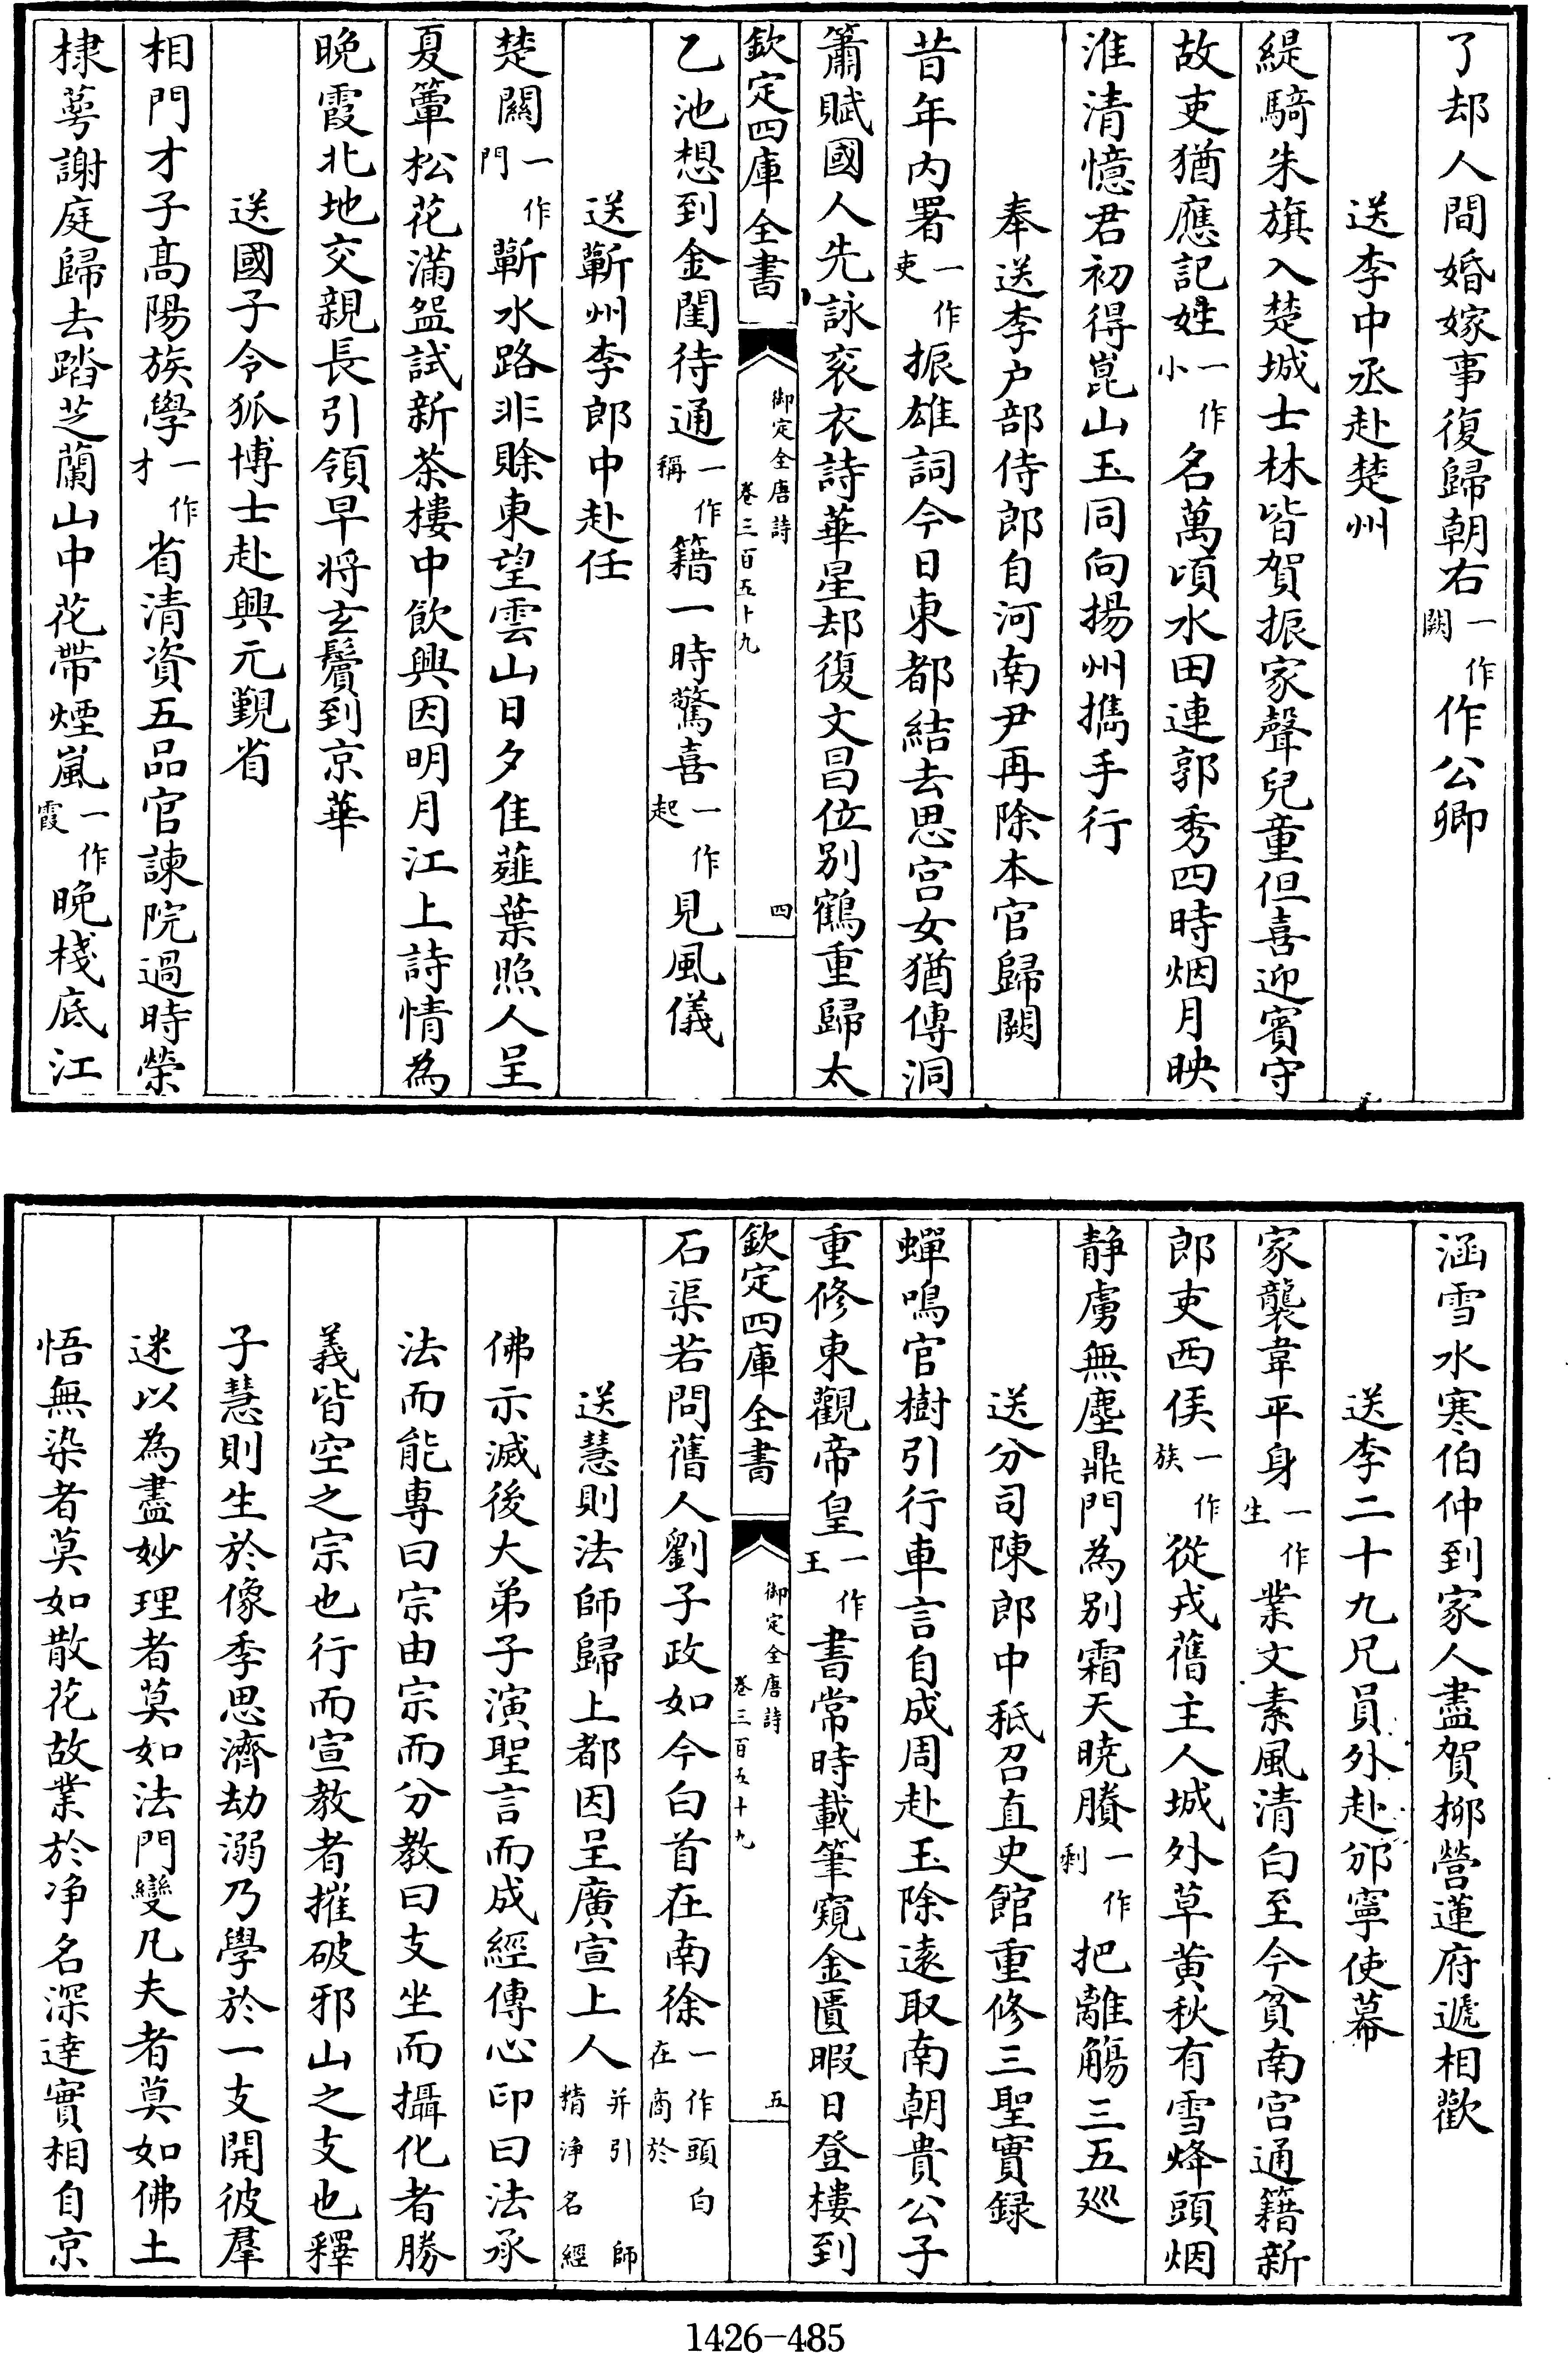 了却人間婚嫁事復歸朝右一作闕作公卿
送李中丞赴楚州
緹騎朱旗入楚城士林皆賀振家聲兒童但喜迎賓守
故吏猶應記姓一作小名萬頃水田連郭秀四時烟月映
淮清憶君初得崑山玉同向揚州擕手行
奉送李户部侍郎自河南尹再除本官歸闕
昔年内署一作吏振雄詞今日東都結去思宫女猶傳洞
簫賦國人先詠衮衣詩華星却復文昌位别鶴重歸太
欽定四庫全書
御定全唐詩
卷三百五十九
四
乙池想到金閨待通一作稱籍一時驚喜一作起見風儀
送蘄州李郎中赴任
楚關一作門蘄水路非賖東望雲山日夕佳薤葉照人呈
夏簟松花滿盌試新茶樓中飲興因明月江上詩情為
晚霞北地交親長引領早将玄鬢到京華
送國子令狐博士赴興元覲省
相門才子髙陽族學一作才省清資五品官諫院過時榮
棣萼謝庭歸去踏芝蘭山中花帶煙嵐一作霞晚棧底江
涵雪水寒伯仲到家人盡賀栁營蓮府遞相歡
送李二十九兄員外赴邠寧使幕
家襲韋平身一作生業文素風清白至今貧南宫通籍新
郎吏西侯一作族從戎舊主人城外草黄秋有雪烽頭烟
静虜無塵鼎門為别霜天曉賸一作剩把離觴三五廵
送分司陳郎中秪召直史館重修三聖實録
蟬鳴官樹引行車言自成周赴玉除逺取南朝貴公子
重修東觀帝皇一作王書常時載筆窺金匱暇日登樓到
欽定四庫全書
御定全唐詩
卷三百五十九
五
石渠若問舊人劉子政如今白首在南徐一作頭白在商於
送慧則法師歸上都因呈廣宣上人并引師精浄名經
佛示滅後大弟子演聖言而成經傳心印曰法承
法而能專曰宗由宗而分教曰支坐而攝化者勝
義皆空之宗也行而宣教者摧破邪山之支也釋
子慧則生於像季思濟劫溺乃學於一支開彼羣
迷以為盡妙理者莫如法門變凡夫者莫如佛土
悟無染者莫如散花故業於净名深逹實相自京
1426-485